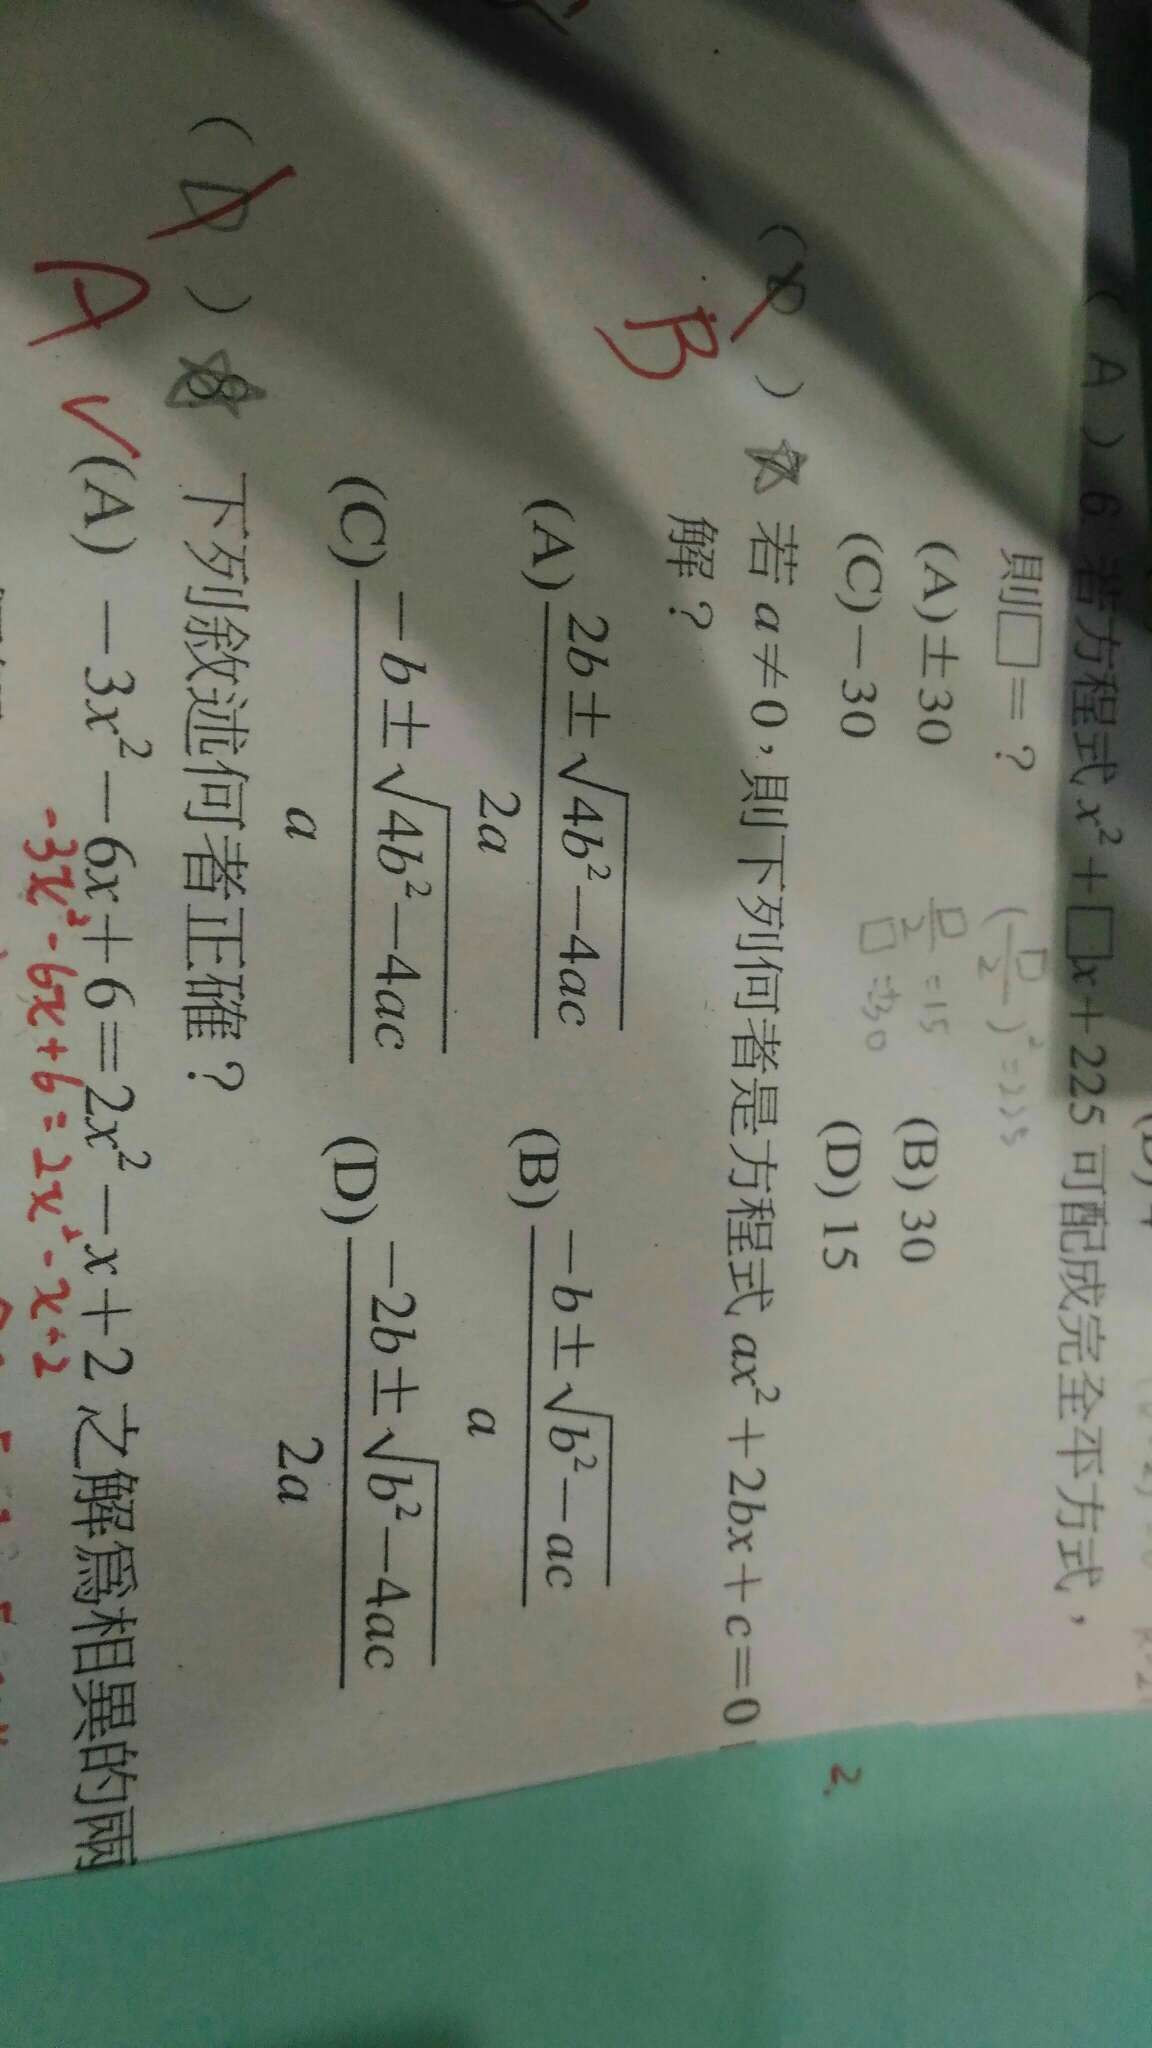 (A) 6 若方程式 x²+□x+225 可配成完全平方式，
則□=？
(□/2)²=225
(A)±30 (B) 30
□/2=15
(C)−30 (D) 15
( ) 若 a≠0，則下列何者是方程式 ax²+2bx+c=0
解？
B
(A) (2b±√(4b²−4ac))/2a (B) (−b±√(b²−ac))/a
(C) (−b±√(4b²−4ac))/a (D) (−2b±√(b²−4ac))/2a
(D) 8 下列敘述何者正確？
A
✓(A) −3x²−6x+6=2x²−x+2 之解為相異的兩
-3x²-6x+6=2x²-x+2
2